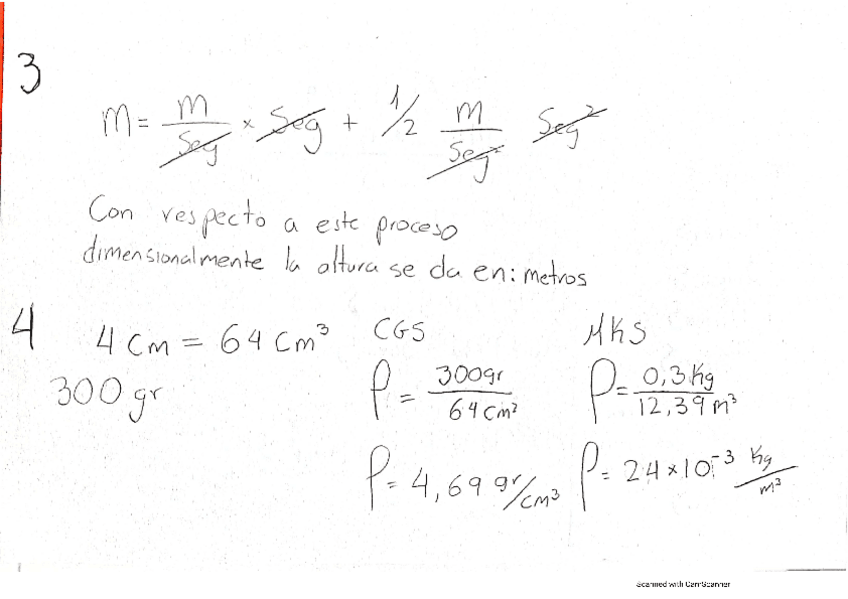 3
m = m/Seg × Seg + 1/2 m/Seg² Seg²
Con respecto a este proceso
dimensionalmente la altura se da en: metros
4
4 cm = 64 cm³
300 gr
CGS
ρ = 300gr/64 cm³
ρ = 4,69 gr/cm³
MKS
ρ = 0,3 Kg/12,39 m³
ρ = 24 × 10⁻³ Kg/m³
Scanned with CamScanner